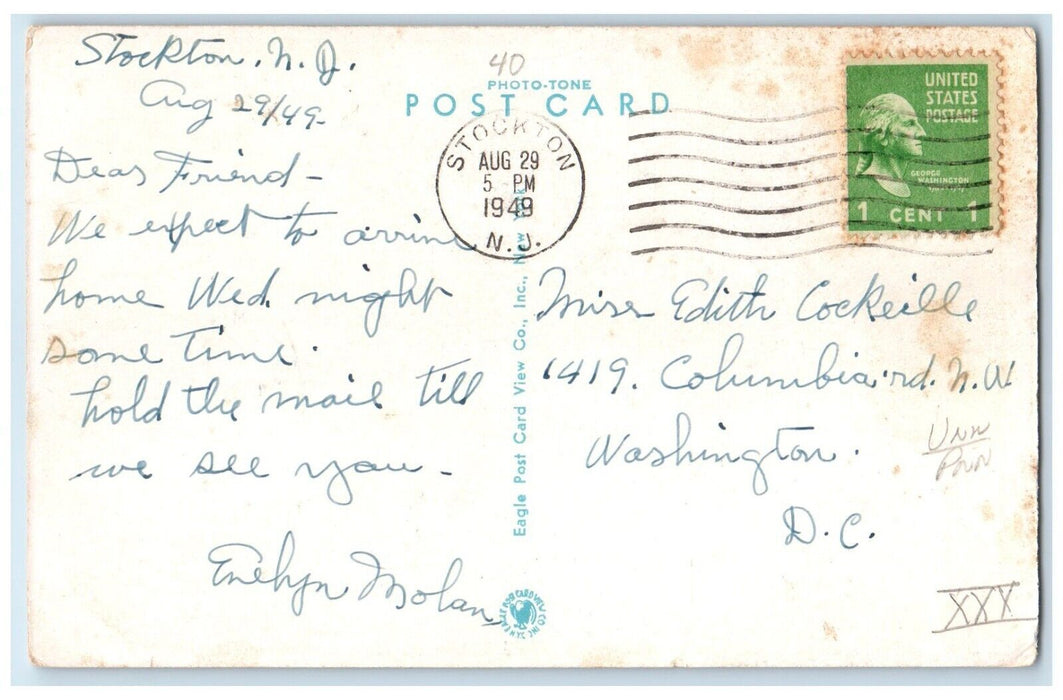 Stockton. N. J.
Aug 29/49-
Dear Friend -
We expect to arrive
home Wed. night
some time.
hold the mail till
we see you -
Evelyn Molan
40
PHOTO-TONE
POST CARD
STOCKTON
AUG 29
5 PM
1949
N. J.
Eagle Post Card View Co., Inc., New
UNITED
STATES
POSTAGE
GEORGE
WASHINGTON
1 CENT 1
Miss Edith Cockeille
1419. Columbia rd. N. W
Washington.
D. C.
XXX